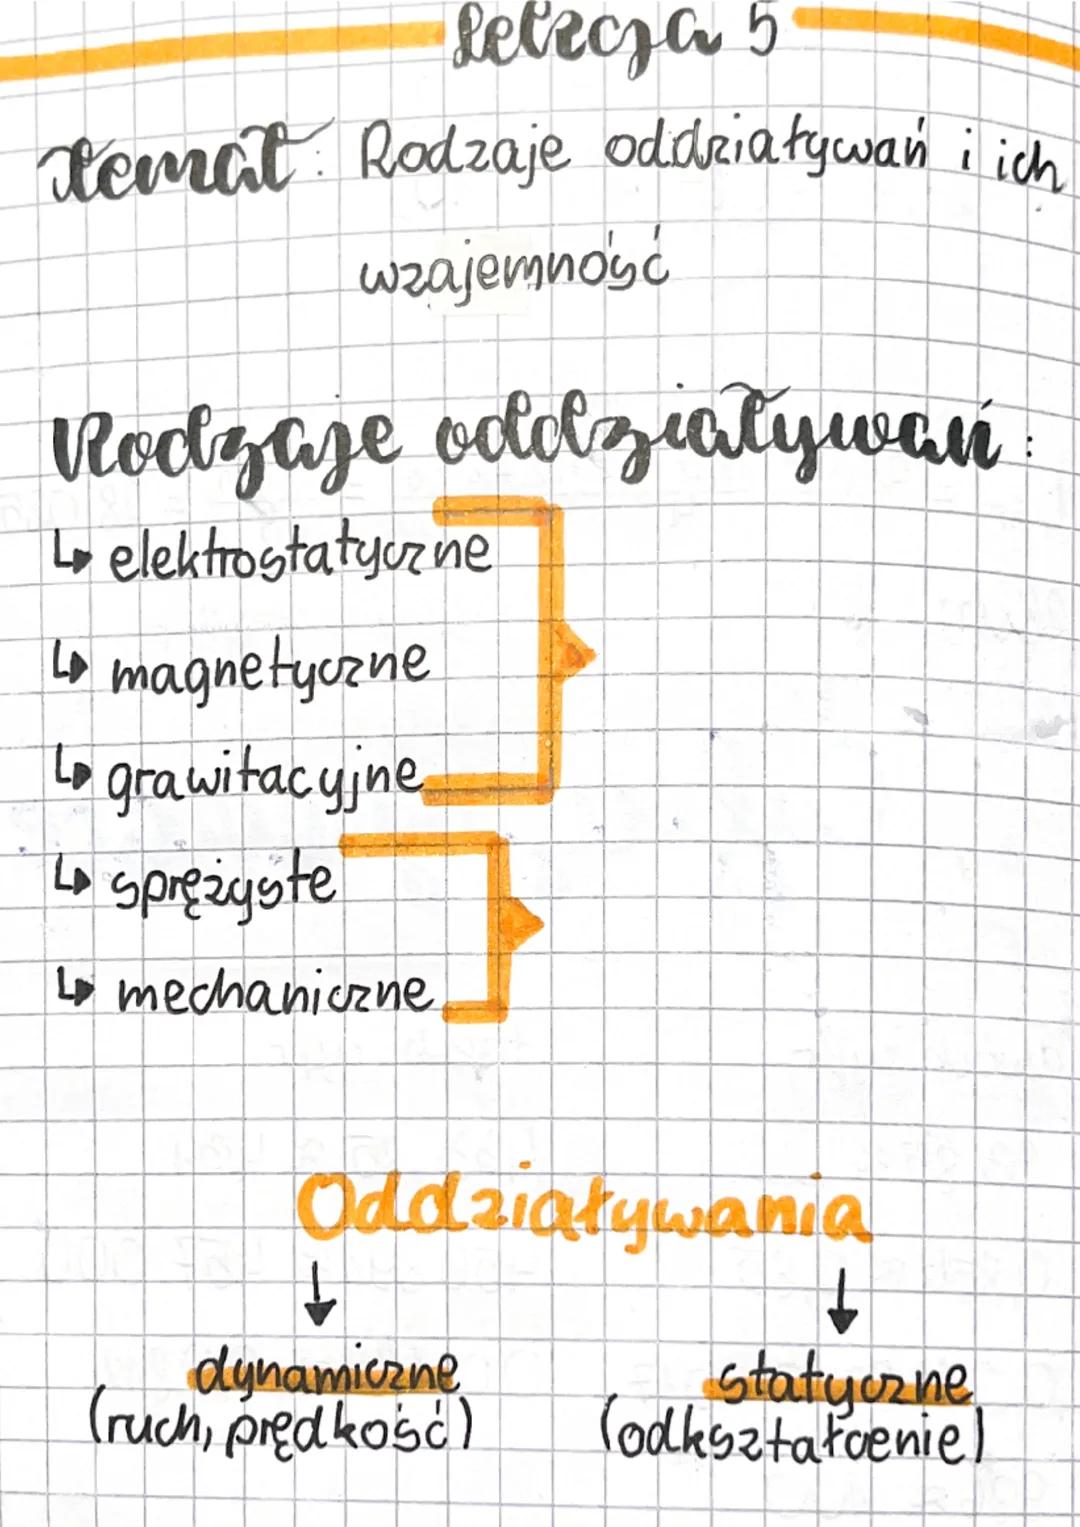 Lekcja 5
Temat: Rodzaje oddziaływań i ich
wzajemność
Rodzaje oddziaływań:
↳ elektrostatyczne
↳ magnetyczne
↳ grawitacyjne
↳ sprężyste
↳ mechaniczne
Oddziaływania
↓ ↓
dynamiczne statyczne
(ruch, prędkość) (odkształcenie)